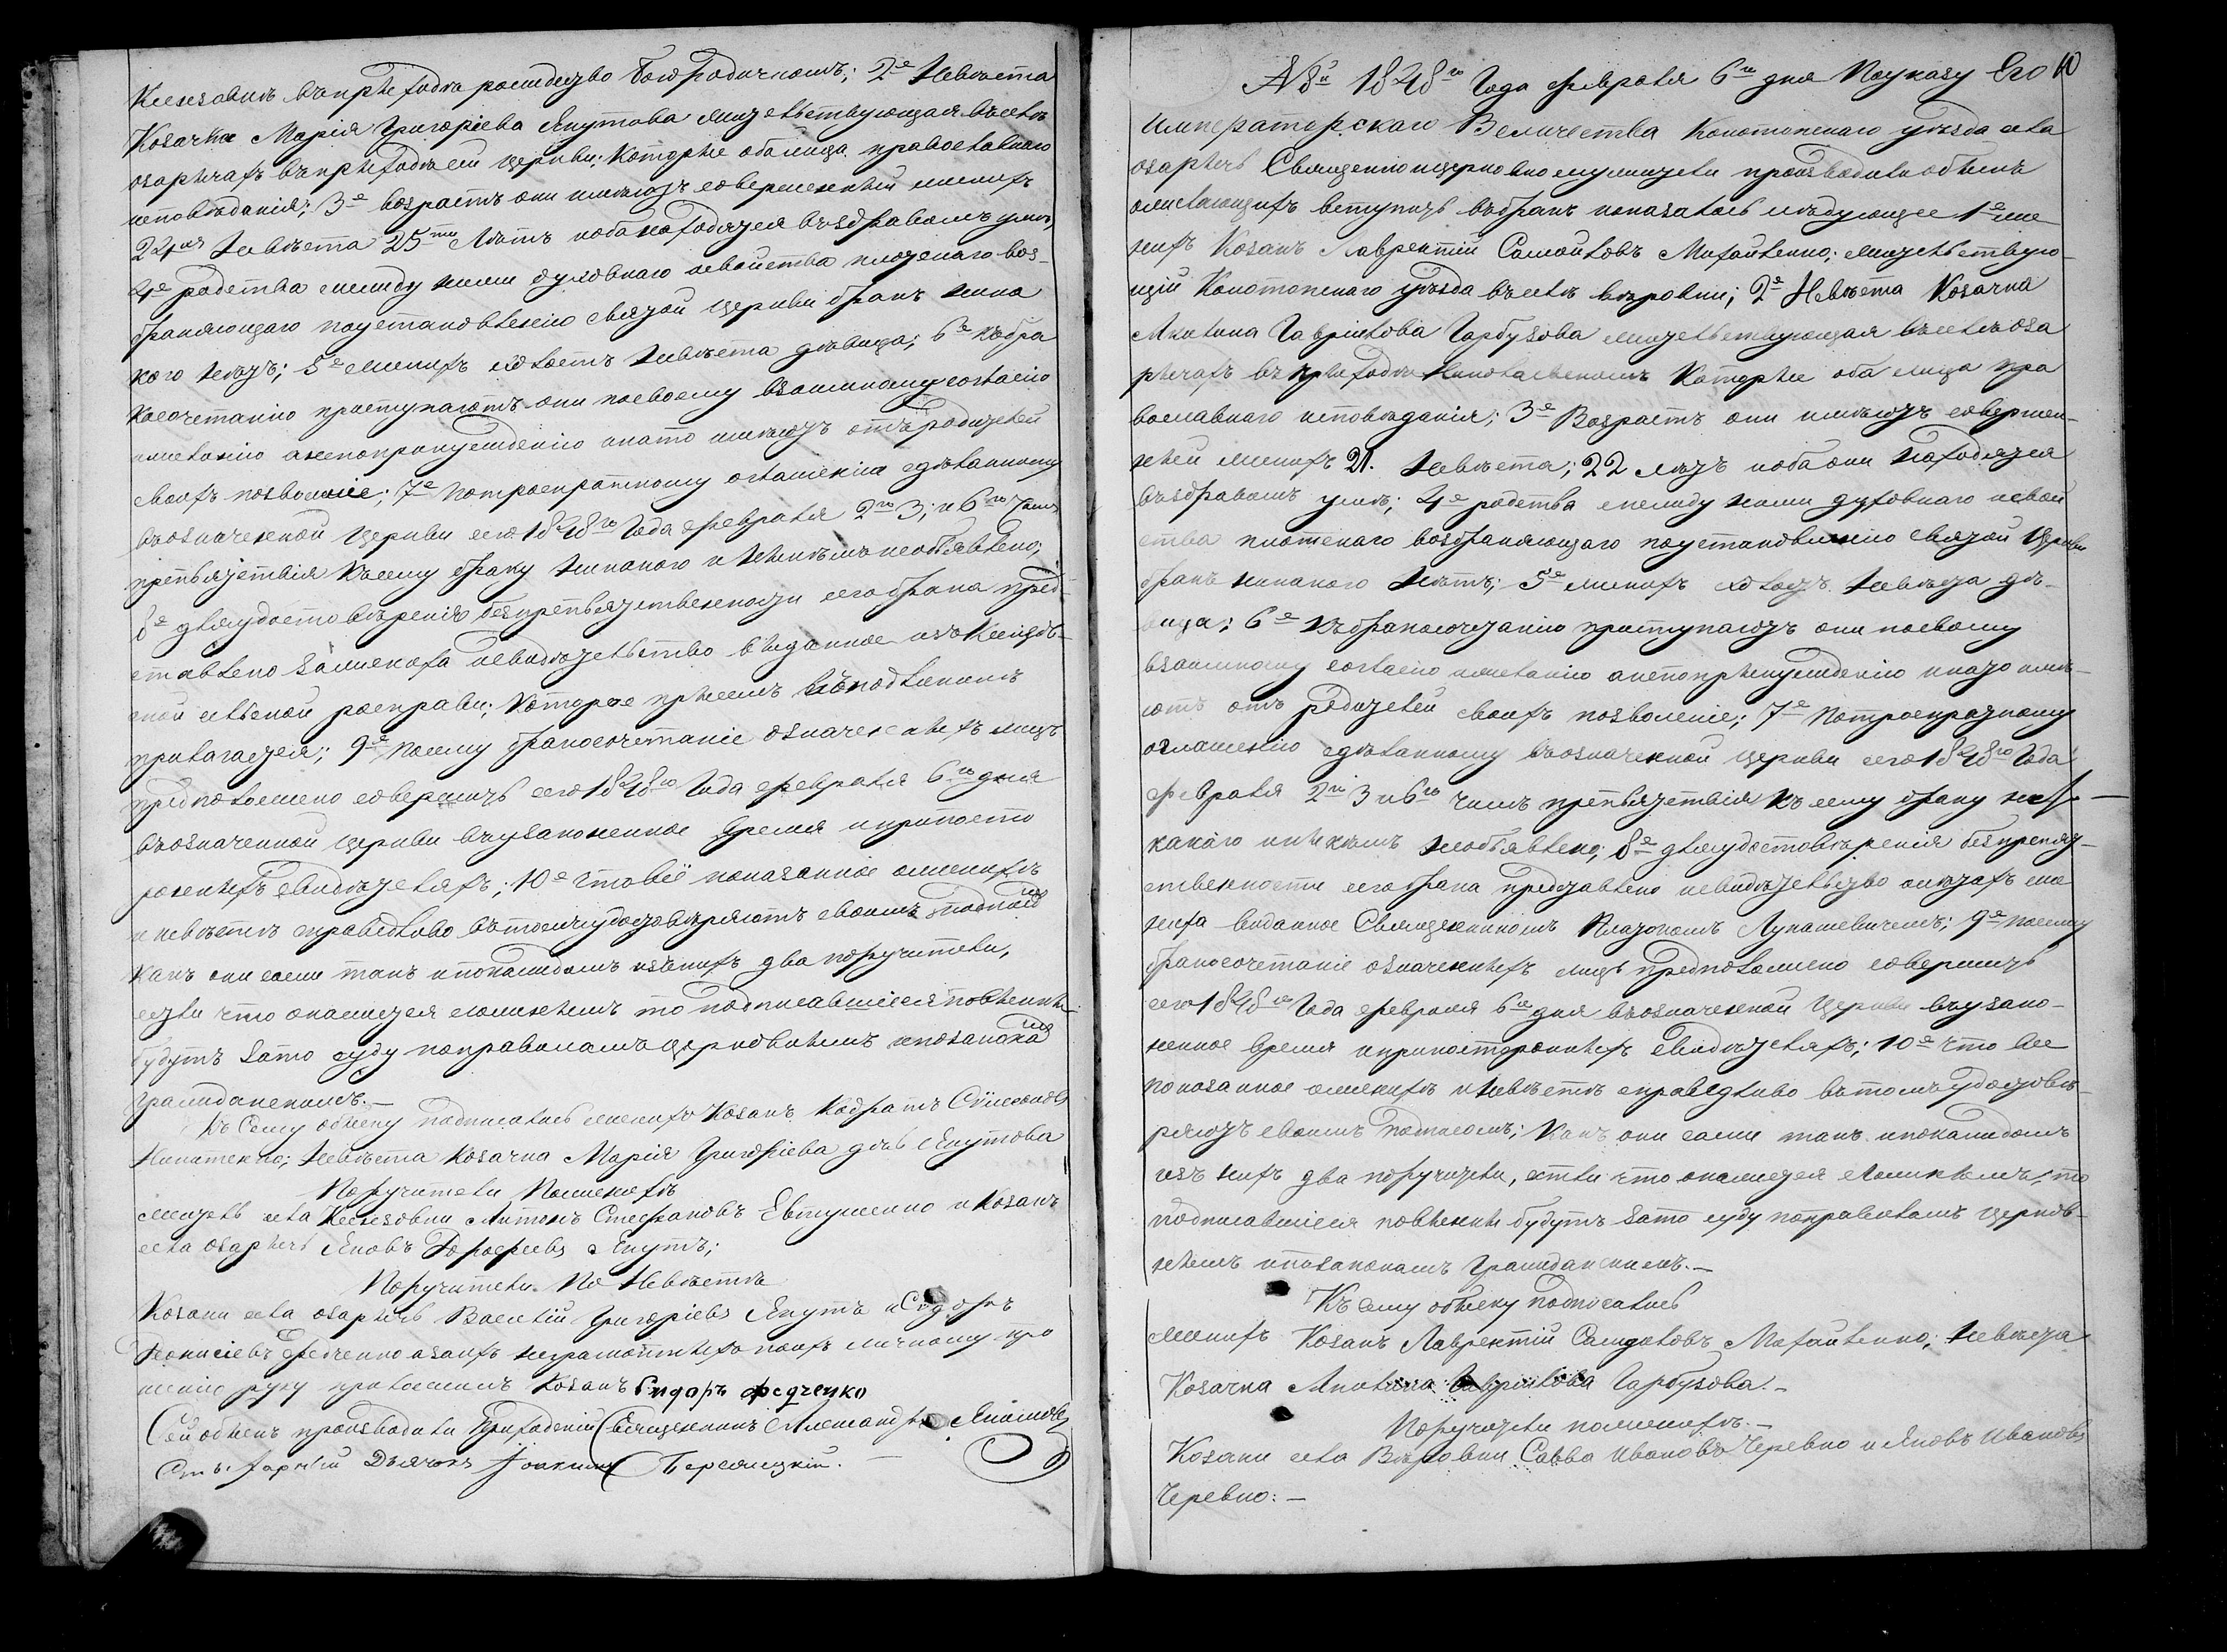 въ приходѣ рождество Богородичномъ; 2е Невѣста
Козачка Марія Григоріева Якутова жительствующая въ селѣ
озарычахъ въ приходѣ сей церкви; Которые оба лица православнаго
исповѣданія; 3е возрастъ они имѣютъ совершенный женихъ
24ре Невѣста 25ти Лѣтъ и оба находятся въ здравомъ умѣ;
4е родства между ними духовнаго и свойства плотскаго воз-
браняющаго по установленію святой церкви бракъ ника
кого нѣтъ; 5е женихъ холостъ невѣста дѣвица; 6е Къ бра
косочетанію приступаютъ они по своему взаимному согласію
и желанію а не по принужденію и на то имѣютъ отъ родителей
своихъ позволеніе; 7е По троекратному оглашенію сдѣланному
въ означенной церкви сего 1848го Года февраля 2го 3; и 6го числъ
препятствія къ сему браку никакого и никѣмъ не объявлено;
8е для удостовѣренія безпрепятственности сего брака пред-
ставлено за жениха свидѣтельство выданное изъ
ской сельской расправы; Которое при семъ въ подлинникѣ
прилагается; 9е По сему бракосочетаніе означенныхъ лицъ
предположено совершить сего 1848го Года февраля 6го дня
въ означенной церкви въ узаконенное время и при посто
роннихъ свидѣтеляхъ; 10е Что все показанное о женихѣ
и невѣстѣ справедливо въ томъ удостовѣряютъ своимъ подписомъ
какъ они сами такъ и по каждомъ изъ нихъ два поручители,
если что окажется ложнымъ то подписавшіеся повинны
будутъ за то суду по правиламъ церковнымъ и по законамъ
гражданскимъ.—
Къ Сему обыску подписались женихъ Козакъ Кодратъ Симеоновъ
Никитенко; Невѣста Козачка Марія Григоріева дочь Якутова
Поручители По женихѣ
житель села Антонъ Стефановъ Евтушенко и Козакъ
села озарычъ Яковъ Дорофеевъ Якутъ;
Поручители По Невѣстѣ
Козаки села озарычъ Василій Григоріевъ Якутъ и Сидоръ
Деонисіевъ Федченко а за ихъ неграмотныхъ по ихъ личному про
шенію руку приложилъ Козакъ Сидоръ Федченко
Сей обыскъ производили Приходскій Священникъ Александръ
Дьячокъ Іоакимъ
№8й 1848го Года февраля 6го дня По указу Его 10
Императорскаго Величества Конотопскаго уѣзда села
озарычъ Священноцерковнослужители производили обыскъ
о желающихъ вступить въ бракъ и оказалось слѣдующее 1е же
нихъ Козакъ Лаврентій Самойловъ Михайленко; жительствую-
щій Конотопскаго уѣзда въ селѣ вировки; 2е Невѣста Козачка
Акилина Гаврилова Гарбузова жительствующая въ селѣ оза
рычахъ въ приходѣ Николаевскомъ Которые оба лица пра
вославнаго исповѣданія; 3е Возрастъ они имѣютъ совершен-
ный женихъ 21. Невѣста; 22 лѣтъ и оба они находятся
въ здравомъ умѣ; 4е родства между ними духовнаго и свой
ства плотскаго возбраняющаго по установленію святой Церкви
бракъ никакого нѣтъ; 5е женихъ холостъ Невѣста дѣ-
вица; 6е Къ бракосочетанію приступаютъ они по своему
взаимному согласію и желанію а не по принужденію и на то имѣ-
ютъ отъ родителей своихъ позволеніе; 7е По троекратному
оглашенію сдѣланному въ означенной церкви сего 1848го Года
февраля 2го 3 и 6го числъ препятствія къ сему браку ни—
какого и никѣмъ не объявлено; 8е для удостовѣренія безпрепят-
ственности сего брака представлено свидѣтельство о лѣтахъ же
ниха выданное Священникомъ Платономъ Лукашевичемъ; 9е По сему
бракосочетаніе означенныхъ лицъ предположено совершить
сего 1848го Года февраля 6го дня въ означенной Церкви въ узако-
ненное время и при постороннихъ свидѣтеляхъ; 10е что все
показанное о женихѣ и Невѣстѣ справедливо въ томъ удостовѣ-
ряютъ своимъ подписомъ; Какъ они сами такъ и по каждомъ
изъ нихъ два поручители, естли что окажется ложнымъ, то
подписавшіеся повинны будутъ за то суду по правиламъ церков-
нымъ и по законамъ Гражданскимъ.—
Къ сему обыску подписались
женихъ Козакъ Лаврентій Самойловъ Михайленко; Невѣста
Козачка Акилина Гаврилова Гарбузова.—
Поручители по женихѣ.—
Козаки села Вировки Савва Ивановъ Черевко и Яковъ Ивановъ
Черевко:—